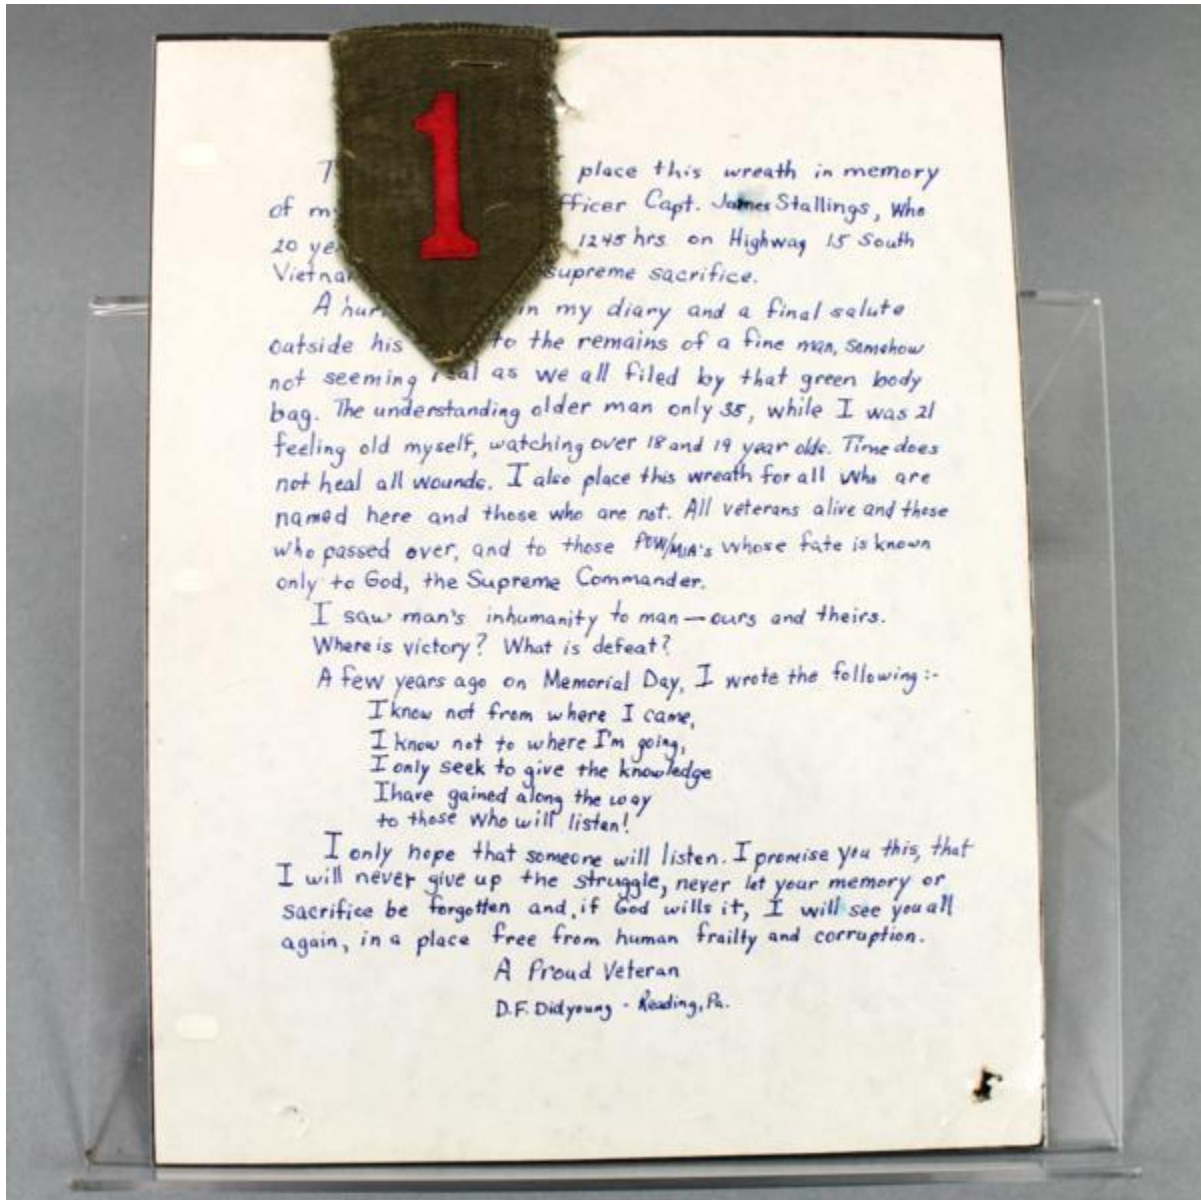 1
place this wreath in memory
of my fficer Capt. James Stallings, who
20 ye 1245 hrs on Highway 15 South
Vietnam supreme sacrifice.
A hur in my diary and a final salute
outside his to the remains of a fine man, somehow
not seeming real as we all filed by that green body
bag. The understanding older man only 35, while I was 21
feeling old myself, watching over 18 and 19 year olds. Time does
not heal all wounds. I also place this wreath for all who are
named here and those who are not. All veterans alive and those
who passed over, and to those POW/MIA's whose fate is known
only to God, the Supreme Commander.
I saw man's inhumanity to man — ours and theirs.
Where is victory? What is defeat?
A few years ago on Memorial Day, I wrote the following:-
I know not from where I came,
I know not to where I'm going,
I only seek to give the knowledge
I have gained along the way
to those who will listen!
I only hope that someone will listen. I promise you this, that
I will never give up the struggle, never let your memory or
sacrifice be forgotten and, if God wills it, I will see you all
again, in a place free from human frailty and corruption.
A Proud Veteran
D.F. Didyoung - Reading, Pa.